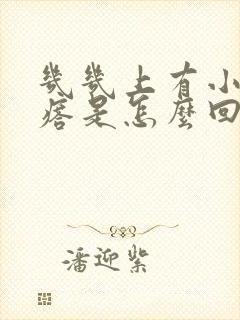 幾幾上有小
痞是怎麼回
潘迎紫